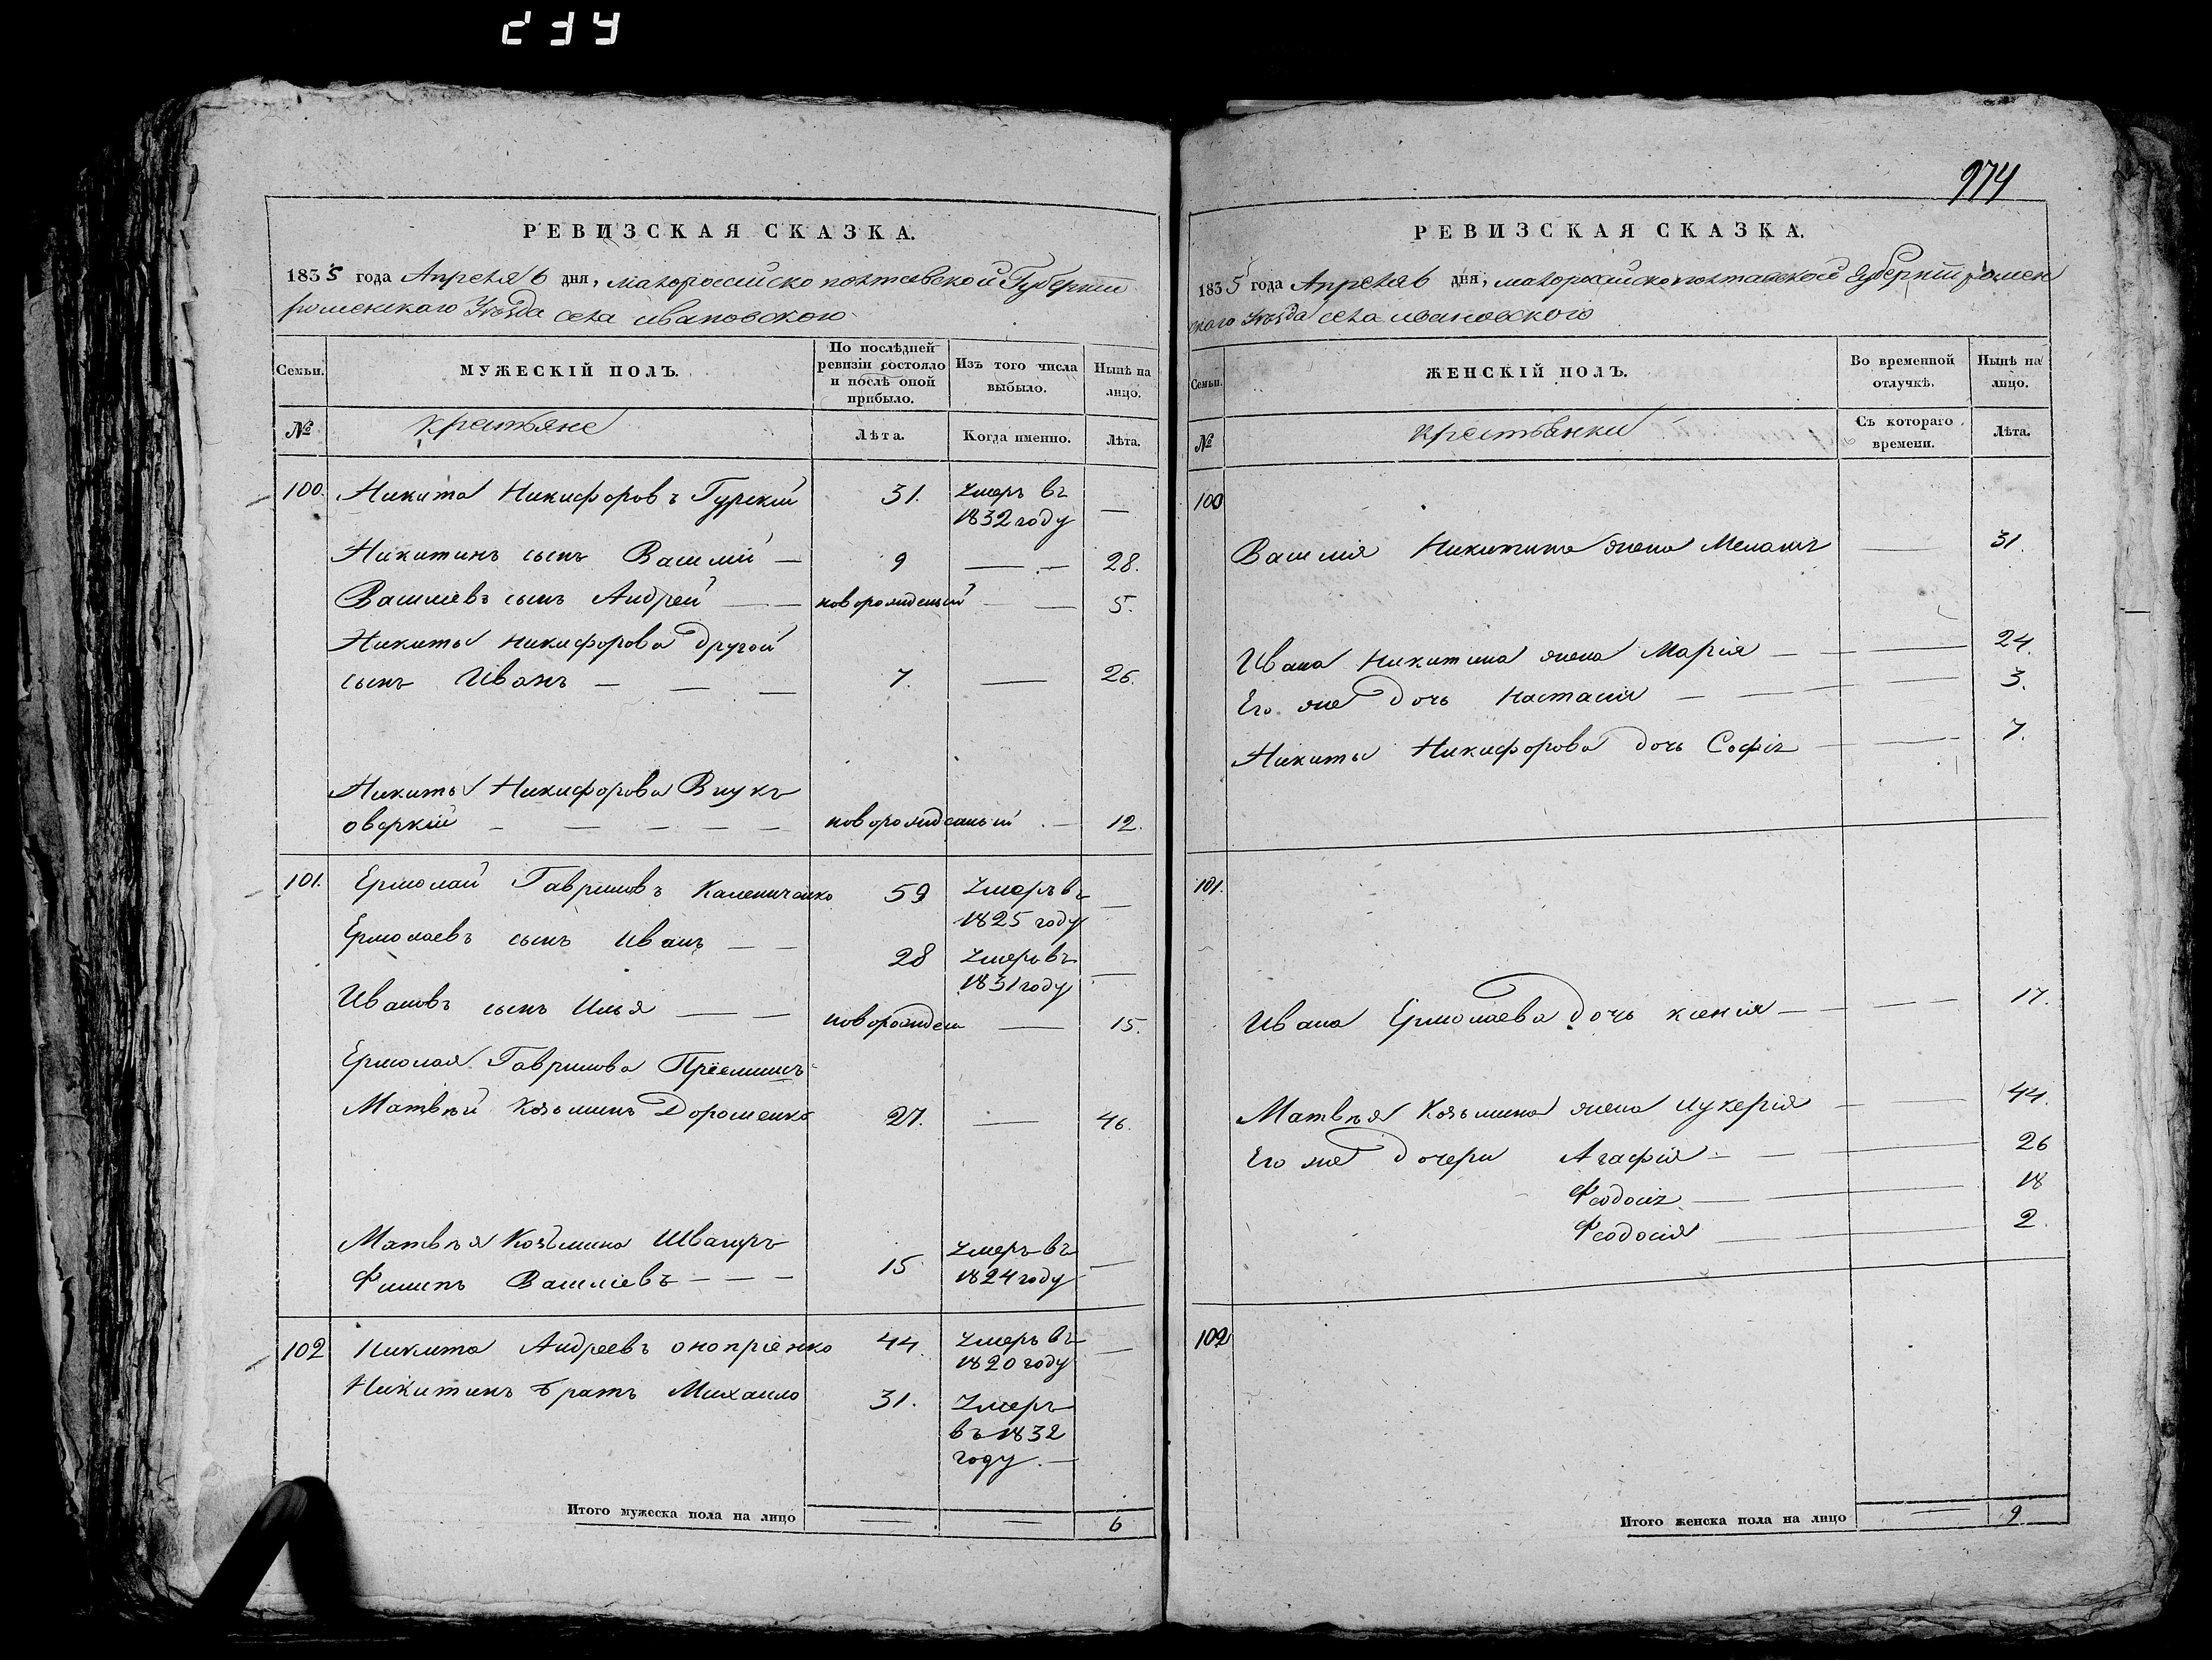 234
РЕВИЗСКАЯ СКАЗКА.
1835 года Апреля 6 дня, малороссийско полтавской Губерніи
роменскаго Уѣзда села ивановского
Семьи.
МУЖЕСКІЙ ПОЛЪ.
По послѣдней ревизіи состояло и послѣ оной прибыло.
Изъ того числа выбыло.
Нынѣ на лицо.
№
крестьяне
Лѣта.
Когда именно.
Лѣта.
100. Никита Никифоровъ Гурскій 31. Умеръ въ 1832 году —
Никитинъ сынъ Василій — 9 — 28.
Василіевъ сынъ Андрей — — новорожденый — — 5.
Никиты Никифорова другой
сынъ Иванъ — — — 7. — 26.
Никиты Никифорова Внукъ
оверкій — — — — — новорожденый — 12.
101. Ермолай Гавриловъ Каленичэнко 59 Умеръ въ 1825 году —
Ермолаевъ сынъ Иванъ — — 28 Умеръ въ 1831 году —
Ивановъ сынъ Илья — — новорожден — 15.
Ермолая Гаврилова Пріемышъ
Матвѣй Козьминъ Дорошенко 27. — 46.
Матвѣя Козьмина Швагеръ
Филипъ Василіевъ — — — 15 Умеръ въ 1824 году —
102 Никита Андреевъ оноприенко 44. Умеръ въ 1820 году —
Никитинъ братъ Михаило 31. Умеръ въ 1832 году. —
Итого мужеска пола на лицо — — 6
974
РЕВИЗСКАЯ СКАЗКА.
1835 года Апреля 6 дня, малороссийско полтавской Губерніи ромен
скаго Уѣзда села ивановского
Семьи.
ЖЕНСКІЙ ПОЛЪ.
Во временной отлучкѣ.
Нынѣ на лицо.
№
крестьянки
Съ котораго времени.
Лѣта.
100
Василія Никитина жена Меланія — 31.
Ивана Никитина жена Марія — — — 24.
Его же дочь Настасия — — — 3.
Никиты Никифорова дочь Софія — — 7.
101.
Ивана Ермолаева дочь ксенія — — — — 17.
Матвѣя Козьмина жена лукерія — — 44.
Его же дочери Агафія — — — 26
Феодосія — — 18
Феодосия — — 2.
102
Итого женска пола на лицо — 9